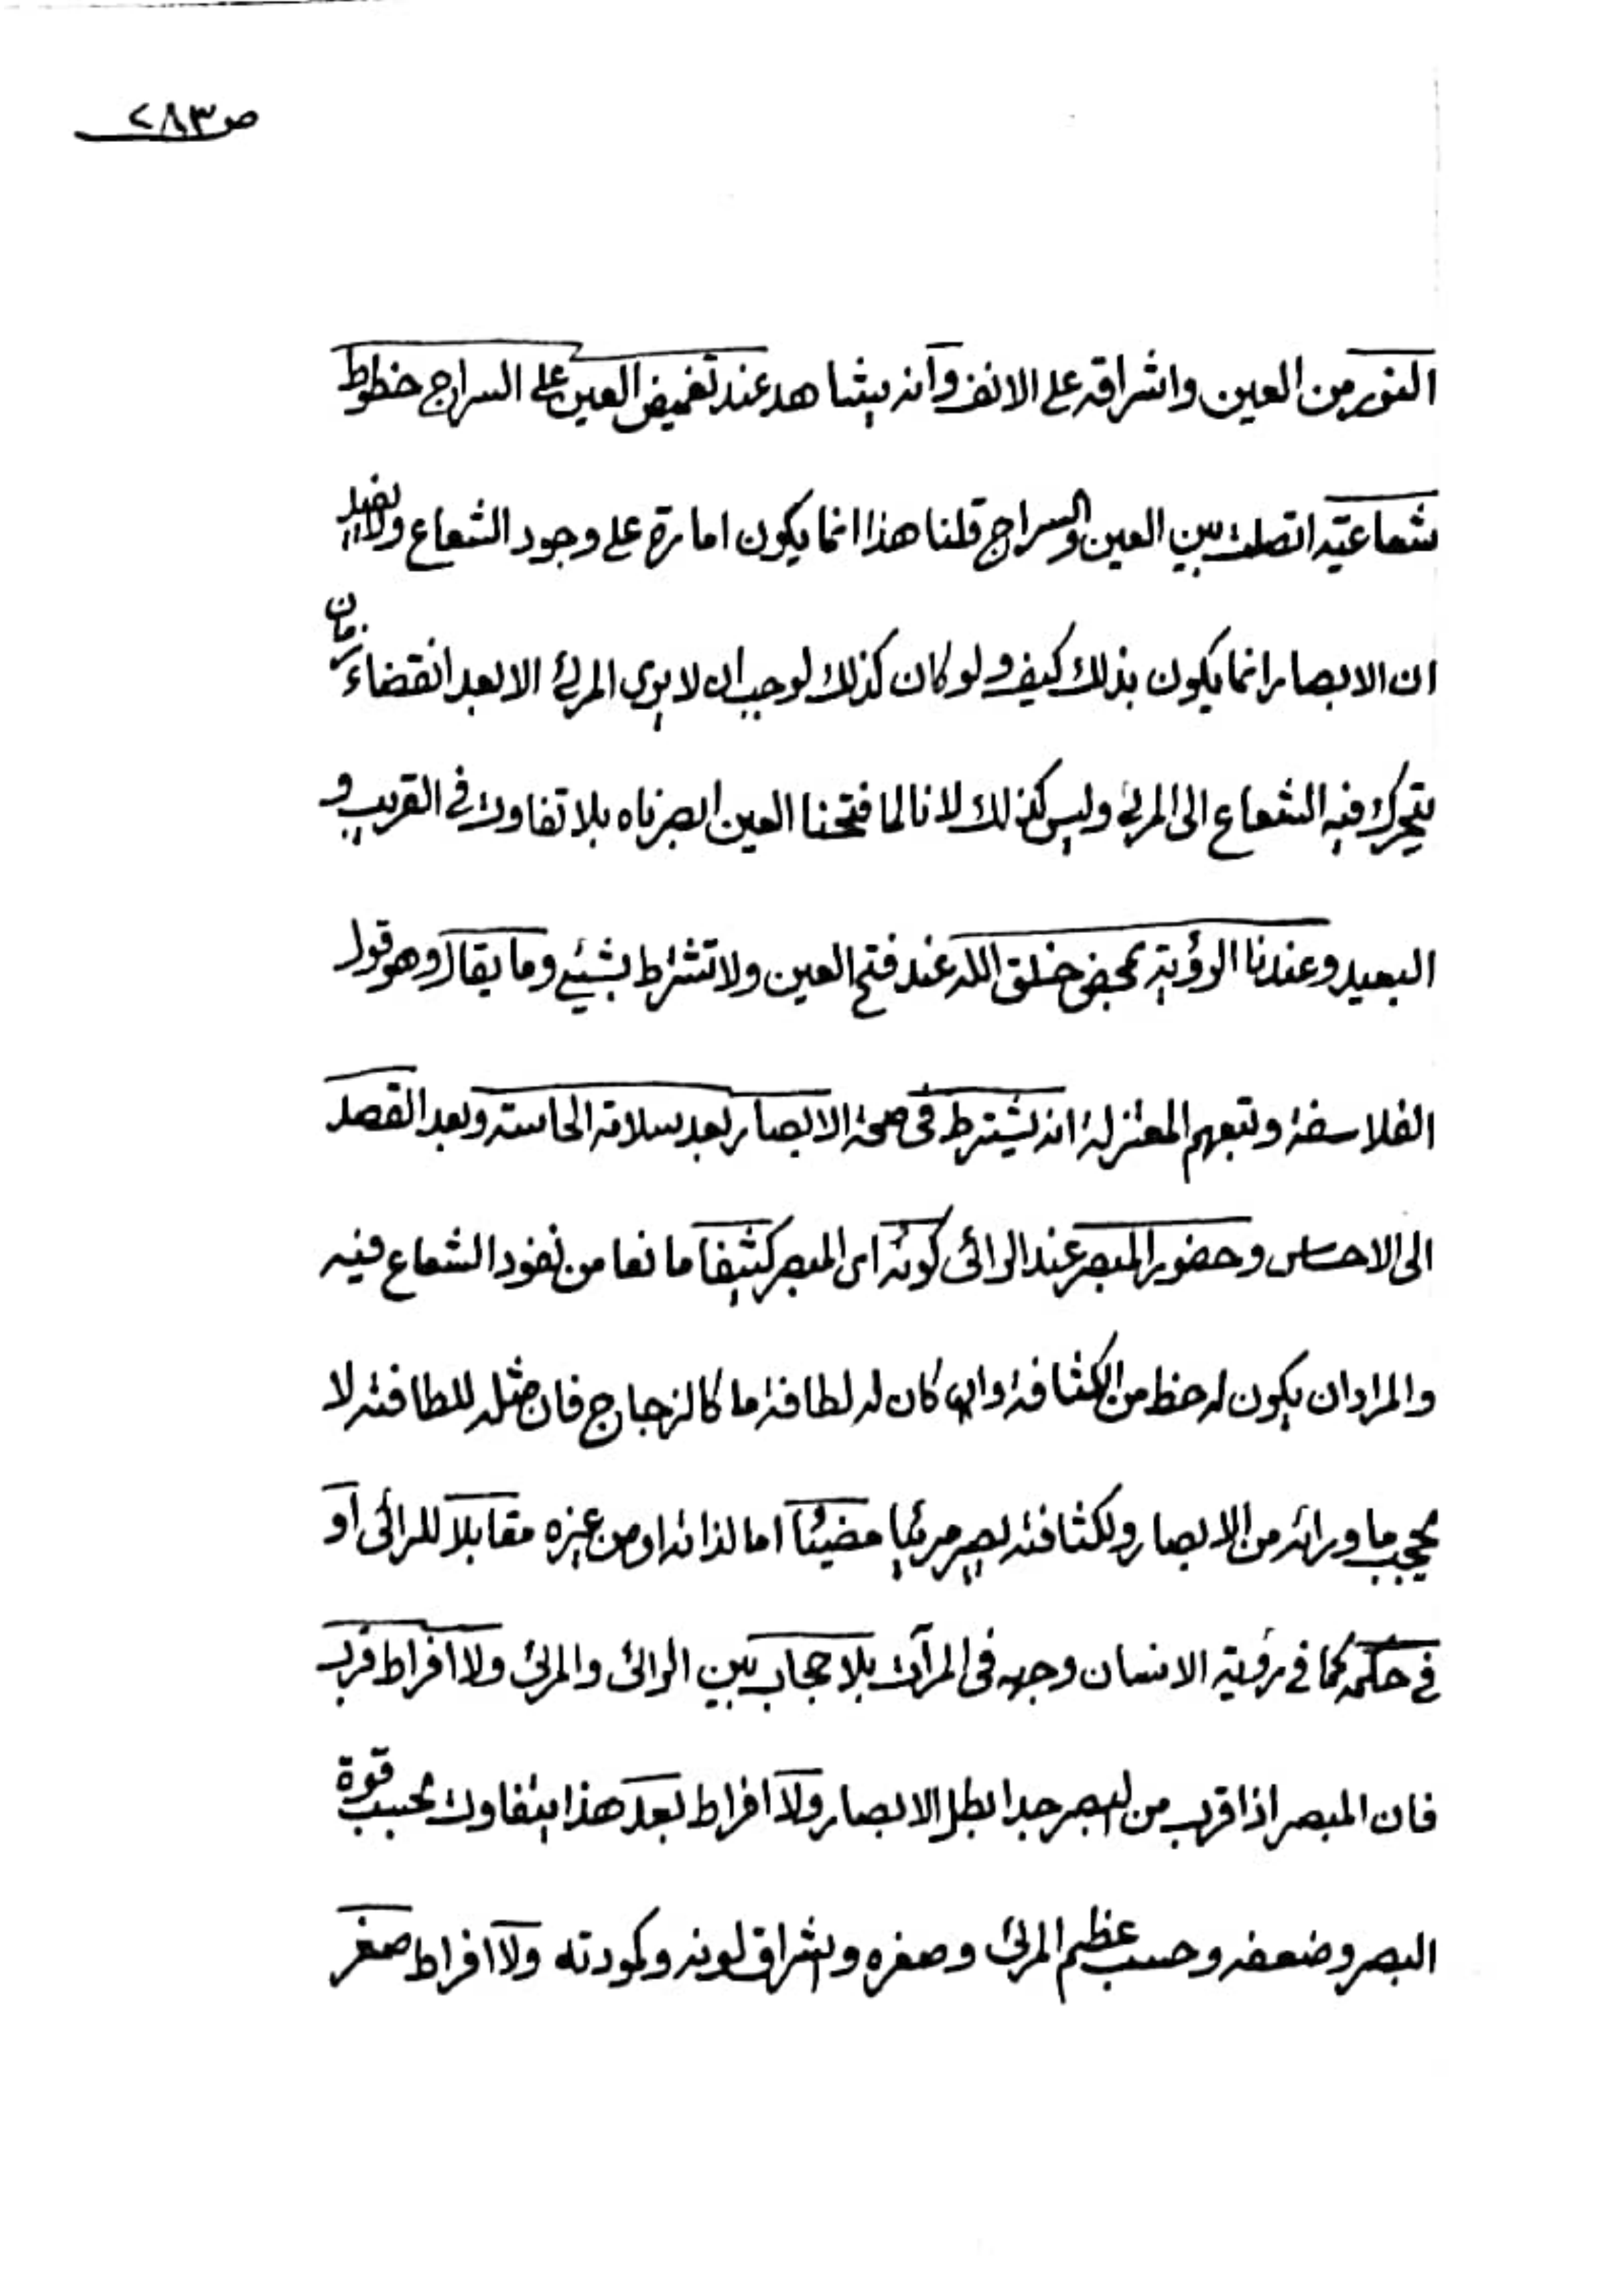 ص٢٨٣
النور من العين واشراقه على الانف وانه يشاهد عند تغميض العين على السراج خطوط
شعاعية اتصلت بين العين والسراج قلنا هذا انما يكون امارة على وجود الشعاع ولا يفيد
ان الابصار انما يكون بذلك كيف ولو كان كذلك لوجب ان لا يرى المرئ الا بعد انقضاء زمان
يتحرك فيه الشعاع الى المرئ وليس كذلك لانا لما فتحنا العين ابصرناه بلا تفاوت في القريب و
البعيد وعندنا الرؤية بمحض خلق الله عند فتح العين ولا تشترط بشيئ وما يقال وهو قول
الفلاسفة وتبعهم المعتزلة انه يشترط في صحة الابصار بعد سلامة الحاسة وبعد القصد
الى الاحساس وحضور المبصر عند الرائى كونه اى المبصر كثيفا مانعا من نفود الشعاع فيه
والمراد ان يكون له حظ من الكثافة وان كان له لطافة ما كالزجاج فان مثله للطافته لا
يحجب ما ورائه من الابصار ولكثافته يصير مرئيا مضيئا اما لذاته او من غيره مقابلا للرائى او
في حكمه كما في رؤية الانسان وجهه فى المرآت بلا حجاب بين الرائ والمرئ ولا افراط قرب
فان المبصر اذا قرب من البصر جدا بطل الابصار ولا افراط بعد هذا يتفاوت بحسب قوة
البصر وضعفه وحسب عظيم المرئ وصغره واشراق لونه وكمودته ولا افراط صغر